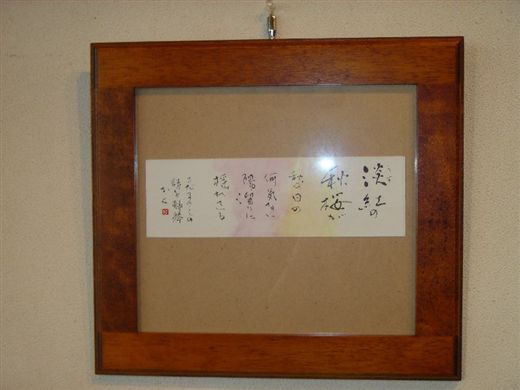 淡紅の
秋桜が
秋の日の
何気ない
陽溜りに
揺れている